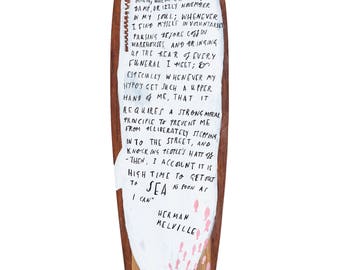 DAMP, DRIZZLY NOVEMBER
IN MY SOUL; WHENEVER
I FIND MYSELF INVOLUNTARILY
PAUSING BEFORE COFFIN
WAREHOUSES AND BRINGING
UP THE REAR OF EVERY
FUNERAL I MEET; &
ESPECIALLY WHENEVER MY
HYPOS GET SUCH A UPPER
HAND OF ME, THAT IT
REQUIRES A STRONG MORAL
PRINCIPLE TO PREVENT ME
FROM DELIBERATELY STEPPING
INTO THE STREET, AND
KNOCKING PEOPLE'S HATS OFF
- THEN, I ACCOUNT IT IS
HIGH TIME TO GET OUT
TO SEA AS SOON AS
I CAN"
HERMAN
MELVILLE